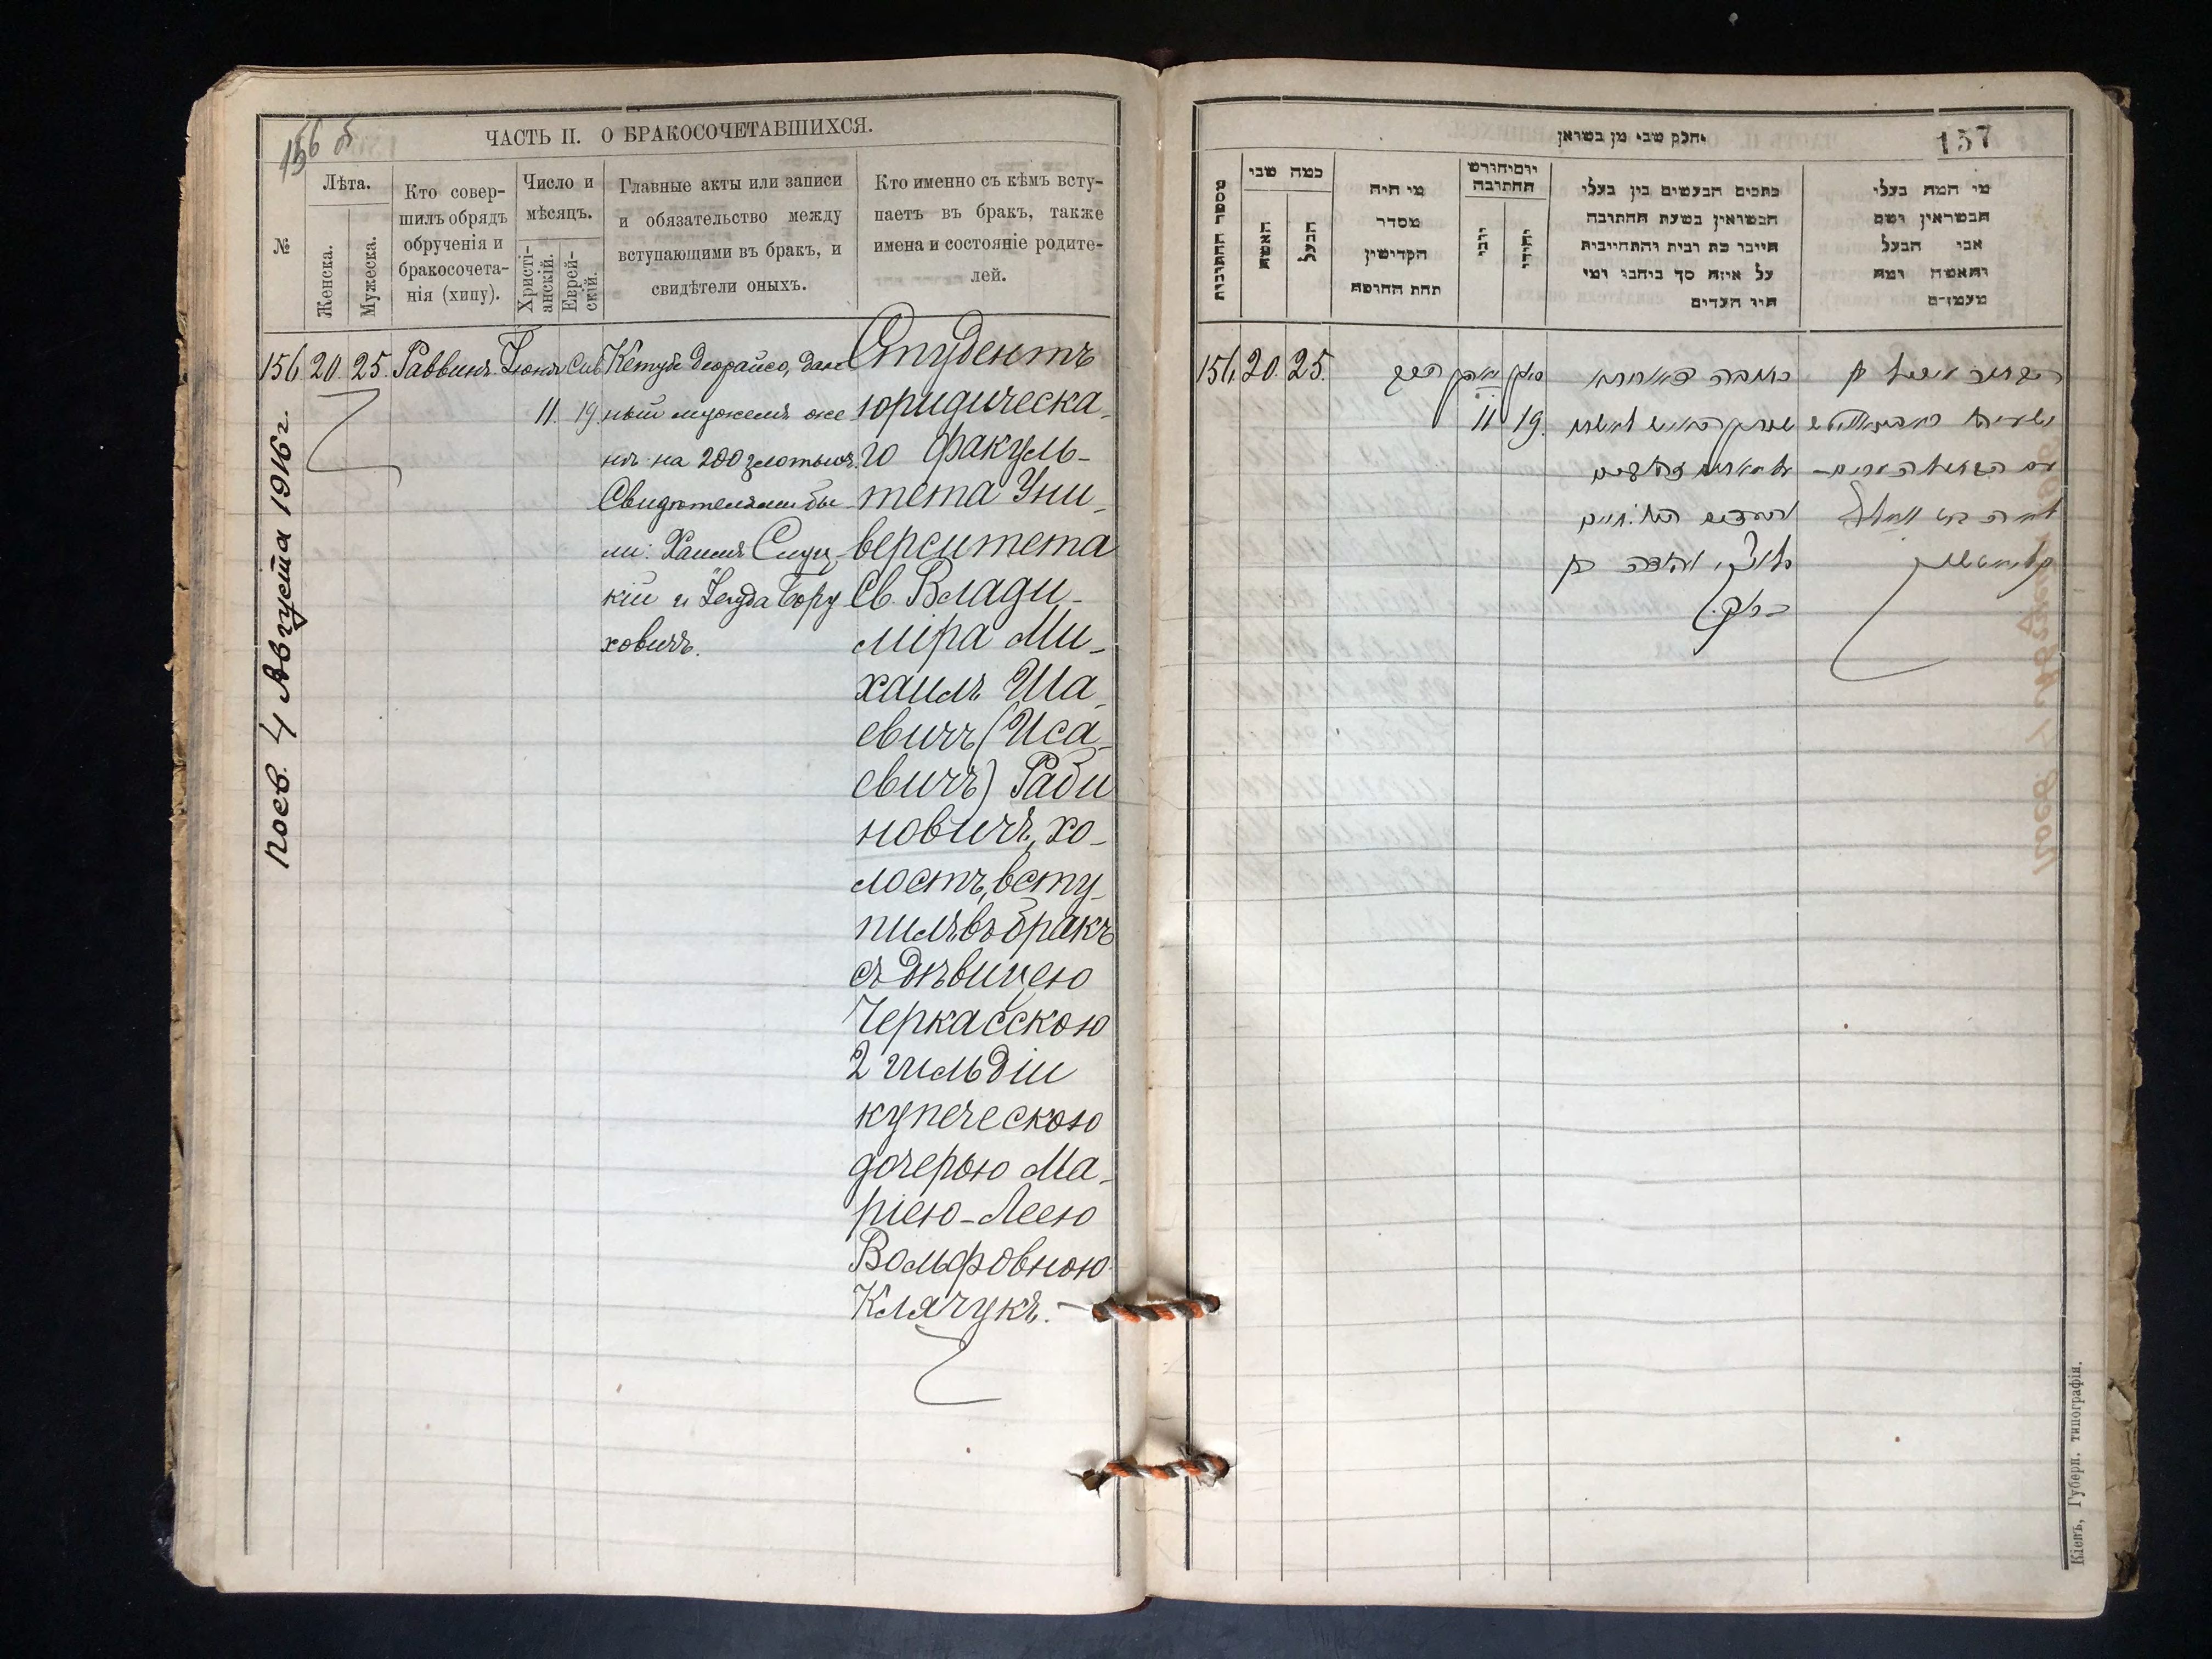 156 об
ЧАСТЬ II. О БРАКОСОЧЕТАВШИХСЯ.
№
Лѣта.
Женска.
Мужеска.
Кто совер-
шилъ обрядъ
обрученія и
бракосочета-
нія (хипу).
Число и
мѣсяцъ.
Христі-
анскій.
Еврей-
скій.
Главные акты или записи
и обязательство между
вступающими въ бракъ, и
свидѣтели оныхъ.
Кто именно съ кѣмъ всту-
паетъ въ бракъ, также
имена и состояніе родите-
лей.
156 20. 25. Раввинъ. Іюня Сив
11. 19.
Кетубъ деорайсо, дан
ный мужемъ же
нѣ на 200 злотыхъ.
Свидѣтелями бы
ли: Хаимъ Слуц
кій и Іегуда Бору
ховичъ.
Студентъ
юридическа-
го факуль-
тета Уни-
верситета
Св. Влади-
міра Ми-
хаилъ Ша-
евичъ (Иса-
евичъ) Раби
новичъ, хо-
лостъ, всту-
пилъ въ бракъ
съ дѣвицею
Черкасскою
2 гильдіи
купеческою
дочерью Ма-
ріею-Леею
Вольфовною
Клячукъ.
поев. 4 Августа 1916 г.
157
וחלק שני מן נשואין
מספר החתונות
כמה שני
האשה
הבעל
מי היה
מסדר
הקדושין
תחת החופה
יום וחודש
החתונה
נוצרי
יהודי
כתבים הנעשים בין בעלי
הנשואין בשעת החתונה
חייבו כת רבית והתחייבות
על איזה סך ביניהם ומי
היו העדים
מי המה בעלי
הנשואין ושם
אבי הבעל
והאשה ומה
מעמדם
156. 20. 25.
11 19.
Кіевъ, Губерн. типографія.